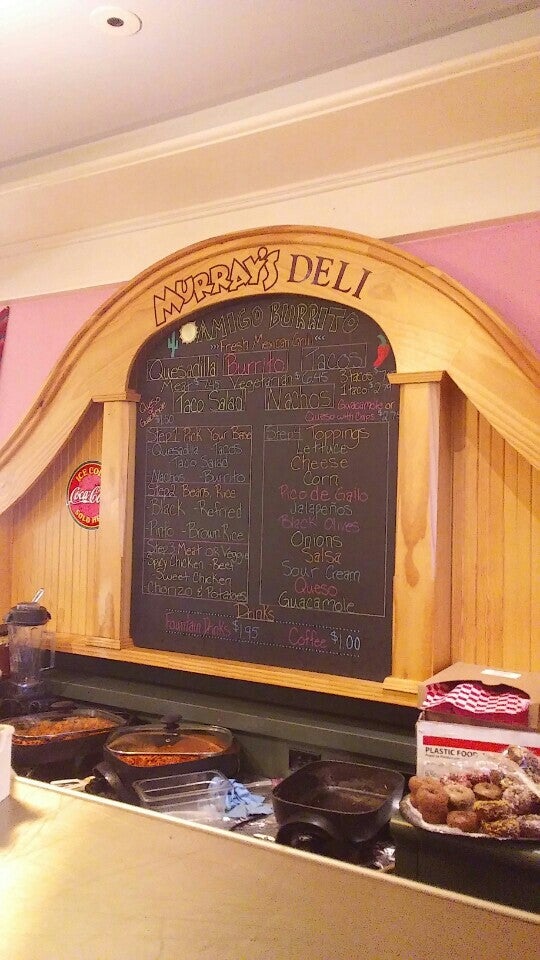 MURRAY'S DELI
AMIGO BURRITO
Fresh Mexican Grill
Quesadilla Burrito Tacos!
Meat $7.45 Vegetarian $6.45 3 tacos
1 taco
Taco Salad! Nachos!
Guacamole or
Queso with Chips
Step 1 Pick Your Base
Quesadilla - Tacos
Taco Salad
Nachos - Burrito
Step 2 Beans, Rice
Black - Refried
Pinto - Brown Rice
Step 3 Meat or Veggie
Spicy Chicken - Beef
Sweet Chicken
Chorizo & Potatoes
Step 4 Toppings
Lettuce
Cheese
Corn
Pico de Gallo
Jalapeños
Black Olives
Onions
Salsa
Sour Cream
Queso
Guacamole
Drinks
Fountain Drinks $1.95 Coffee $1.00
ICE COLD
Coca-Cola
SOLD HERE
PLASTIC FOOD